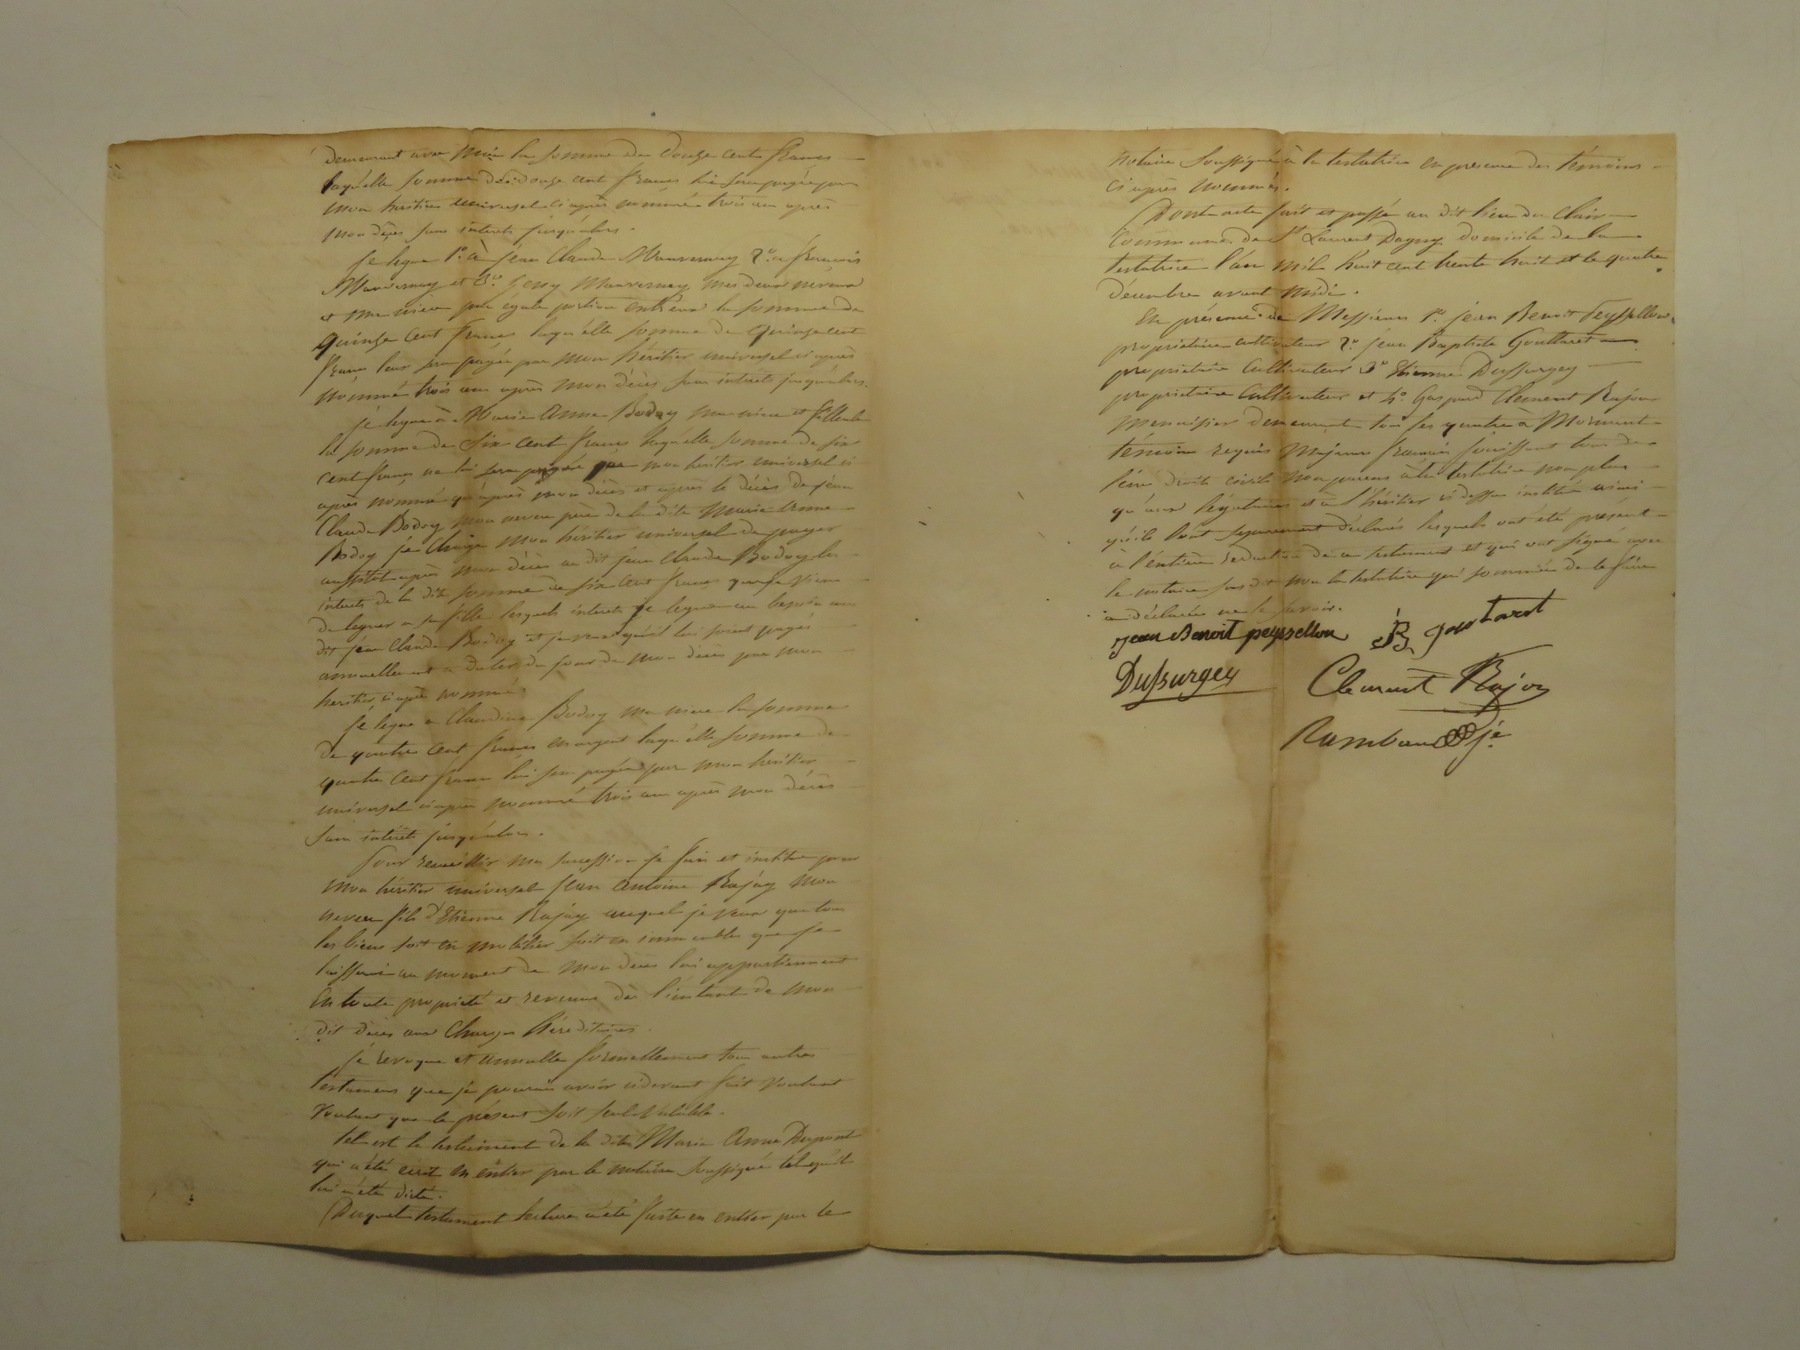 demeurant avec moi la somme de douze cent francs
laquelle somme de douze cent francs lui sera payée par
mon héritier universel ci après nommé trois ans après
mon décès sans interets jusqu'alors.
Je legue 1o à Jean Claude Mauvernay 2o à francois
Mauvernay et 3o Jeny Mauvernay mes deux neveux
et ma niece par égale portion entr'eux la somme de
quinze cent francs laquelle somme de quinze cent
francs leur sera payée par mon héritier universel ci après
nommé trois ans après mon décès sans interets jusqu'alors.
Je legue à Marie Anne Bodoy ma niece et filleule
la somme de six cent francs laquelle somme de six
cent francs ne lui sera payée par mon héritier universel ci
après nommé qu'après mon décès et après le décès de Jean
Claude Bodoy mon neveu père de la dite Marie Anne
Bodoy je charge mon héritier universel de payer
aussitot après mon décès au dit Jean Claude Bodoy les
interets de la dite somme de six cent francs que je viens
de leguer a sa fille lesquels interets je legue au besoin au
dit Jean Claude Bodoy et je veux qu'ils lui soient payés
annuellement a dater du jour de mon décès par mon
heritier ci après nommé.
Je legue a Claudine Bodoy ma niece la somme
de quatre cent francs en argent laquelle somme de
quatre cent francs lui sera payée par mon héritier
universel ci après nommé trois ans après mon décès
sans interets jusqu'alors.
Pour recueillir ma succession je fais et institue pour
mon héritier universel Jean Antoine Rajoy mon
neveu fils d'Etienne Rajoy auquel je veux que tous
les biens soit en mobilier soit en immeubles que je
laisserai au moment de mon deces lui appartiennent
en toute propriété et revenus dès l'instant de mon
dit deces aux charges héréditaires.
Je revoque et annulle formellement tous autres
testamens que je pourrais avoir cidevant fait voulant
voulant que le présent soit seul valable.
Tel est le testament de la dite Marie Anne Dupont
qui a été ecrit en entier par le notaire soussigné tel qu'il
lui a été dicté.
Duquel testament lecture a été faite en entier par le
notaire soussigné à la testatrice en présence des témoins
ci après nommés.
Dont acte fait et passé au dit lieu du Clair
Commune de St Laurent Dagny domicile de la
testatrice l'an mil huit cent trente huit et le quatre
décembre avant midi.
En présence de Messieurs 1o Jean Benoit Peyssellon
propriétaire cultivateur 2o Jean Baptiste Gouttaret
propriétaire cultivateur 3o Etienne Dussurgey
propriétaire cultivateur et 4o Gaspard Clement Rajon
Menuisier demeurant tous les quatre à Mornant
témoins requis Majeurs francais jouissant tous de
leurs droits civils non parens à la testatrice non plus
qu'aux légataires et à l'héritier cidessus institué ainsi
qu'ils l'ont séparement déclaré lesquels ont été présent
a l'entière redaction de ce testament et qui ont signé avec
le notaire sus dit non la testatrice qui sommée de le faire
a déclarée ne le savoir.
Jean Benoit peyssellon JB goutaret
Dussurgey Clement Rajon
Rambaud